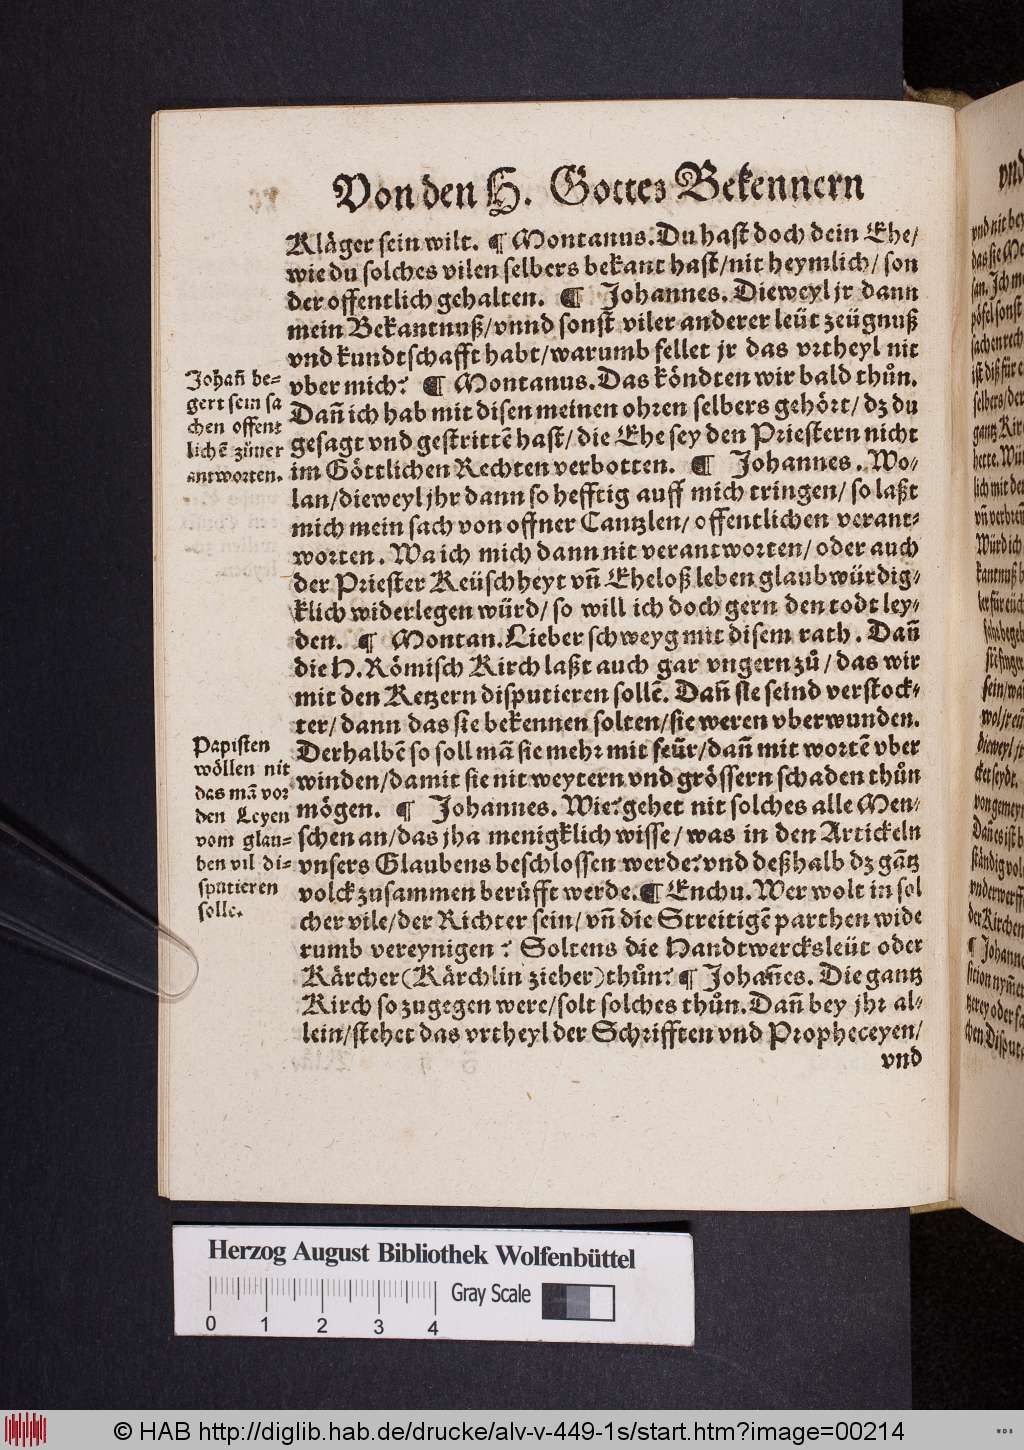 Von den H. Gottes Bekennern
Kläger sein wilt. ¶ Montanus. Du hast doch dein Ehe/
wie du solches vilen selbers bekant hast/nit heymlich/ son
der offentlich gehalten. ¶ Johannes. Dieweyl jr dann
mein Bekantnuß/vnnd sonst viler anderer leüt zeügnuß
vnd kundtschafft habt/warumb fellet jr das vrtheyl nit
vber mich? ¶ Montanus. Das köndten wir bald thůn.
Dañ ich hab mit disen meinen ohren selbers gehört/ dz du
gesagt vnd gestrittē hast/ die Ehe sey den Priestern nicht
im Göttlichen Rechten verbotten. ¶ Johannes. Wo-
lan/dieweyl jhr dann so hefftig auff mich tringen/ so laßt
mich mein sach von offner Cantzlen/ offentlichen verant-
worten. Wa ich mich dann nit verantworten/ oder auch
der Priester Keüschheyt vñ Eheloß leben glaubwürdig-
klich widerlegen würd/ so will ich doch gern den todt ley-
den. ¶ Montan. Lieber schweyg mit disem rath. Dañ
die H. Römisch Kirch laßt auch gar vngern zů/ das wir
mit den Ketzern disputieren sollē. Dañ sie seind verstock-
ter/ dann das sie bekennen solten/sie weren vberwunden.
Derhalbē so soll mā sie mehr mit feür/dañ mit wortē vber
winden/damit sie nit weytern vnd grössern schaden thůn
mögen. ¶ Johannes. Wie? gehet nit solches alle Men-
schen an/das jha menigklich wisse/ was in den Artickeln
vnsers Glaubens beschlossen werde? vnd deßhalb dz gātz
volck zusammen berüfft werde. ¶ Enchu. Wer wolt in sol
cher vile/der Richter sein/ vñ die Streitigē parthen wide
rumb vereynigen? Soltens die Handtwercksleüt oder
Kärcher (Kärchlin zieher) thůn? ¶ Johañes. Die gantz
Kirch so zugegen were/solt solches thůn. Dañ bey jhr al-
lein/stehet das vrtheyl der Schrifften vnd Propheceyen/
vnd
Johañ be-
gert sein sa
chen offent
lichē zůuer
antworten.
Papisten
wöllen nit
das mā vor
den Leyen
vom glau-
ben vil di-
sputieren
solle.
Herzog August Bibliothek Wolfenbüttel
Gray Scale
0 1 2 3 4
© HAB http://diglib.hab.de/drucke/alv-v-449-1s/start.htm?image=00214